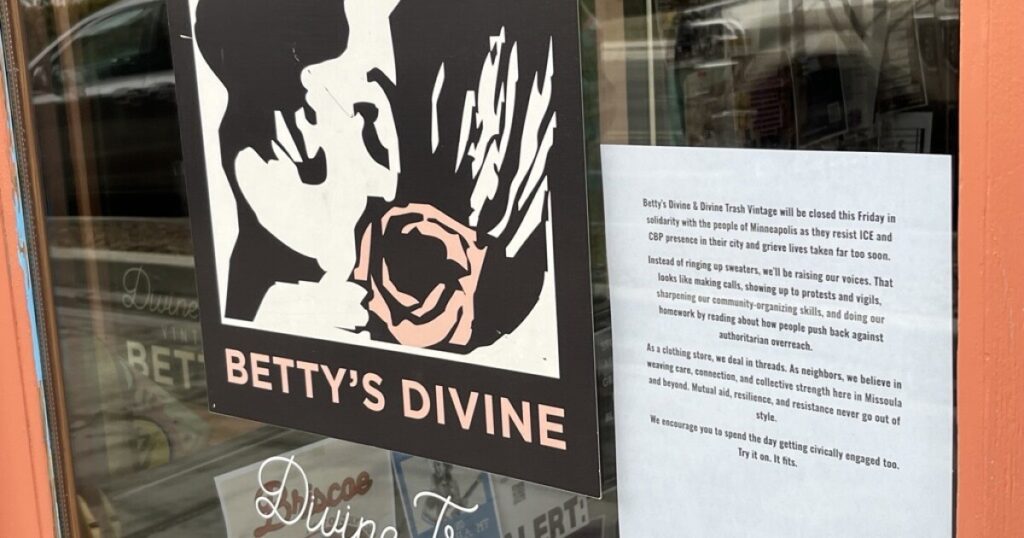 BETTY'S DIVINE
Betty's Divine & Divine Trash Vintage will be closed this Friday in
solidarity with the people of Minneapolis as they resist ICE and
CBP presence in their city and grieve lives taken far too soon.
Instead of ringing up sweaters, we'll be raising our voices. That
looks like making calls, showing up to protests and vigils,
sharpening our community-organizing skills, and doing our
homework by reading about how people push back against
authoritarian overreach.
As a clothing store, we deal in threads. As neighbors, we believe in
weaving care, connection, and collective strength here in Missoula
and beyond. Mutual aid, resilience, and resistance never go out of
style.
We encourage you to spend the day getting civically engaged too.
Try it on. It fits.
Divine
VINT
BETT
Briscoe
Divine Tr
ALERT: